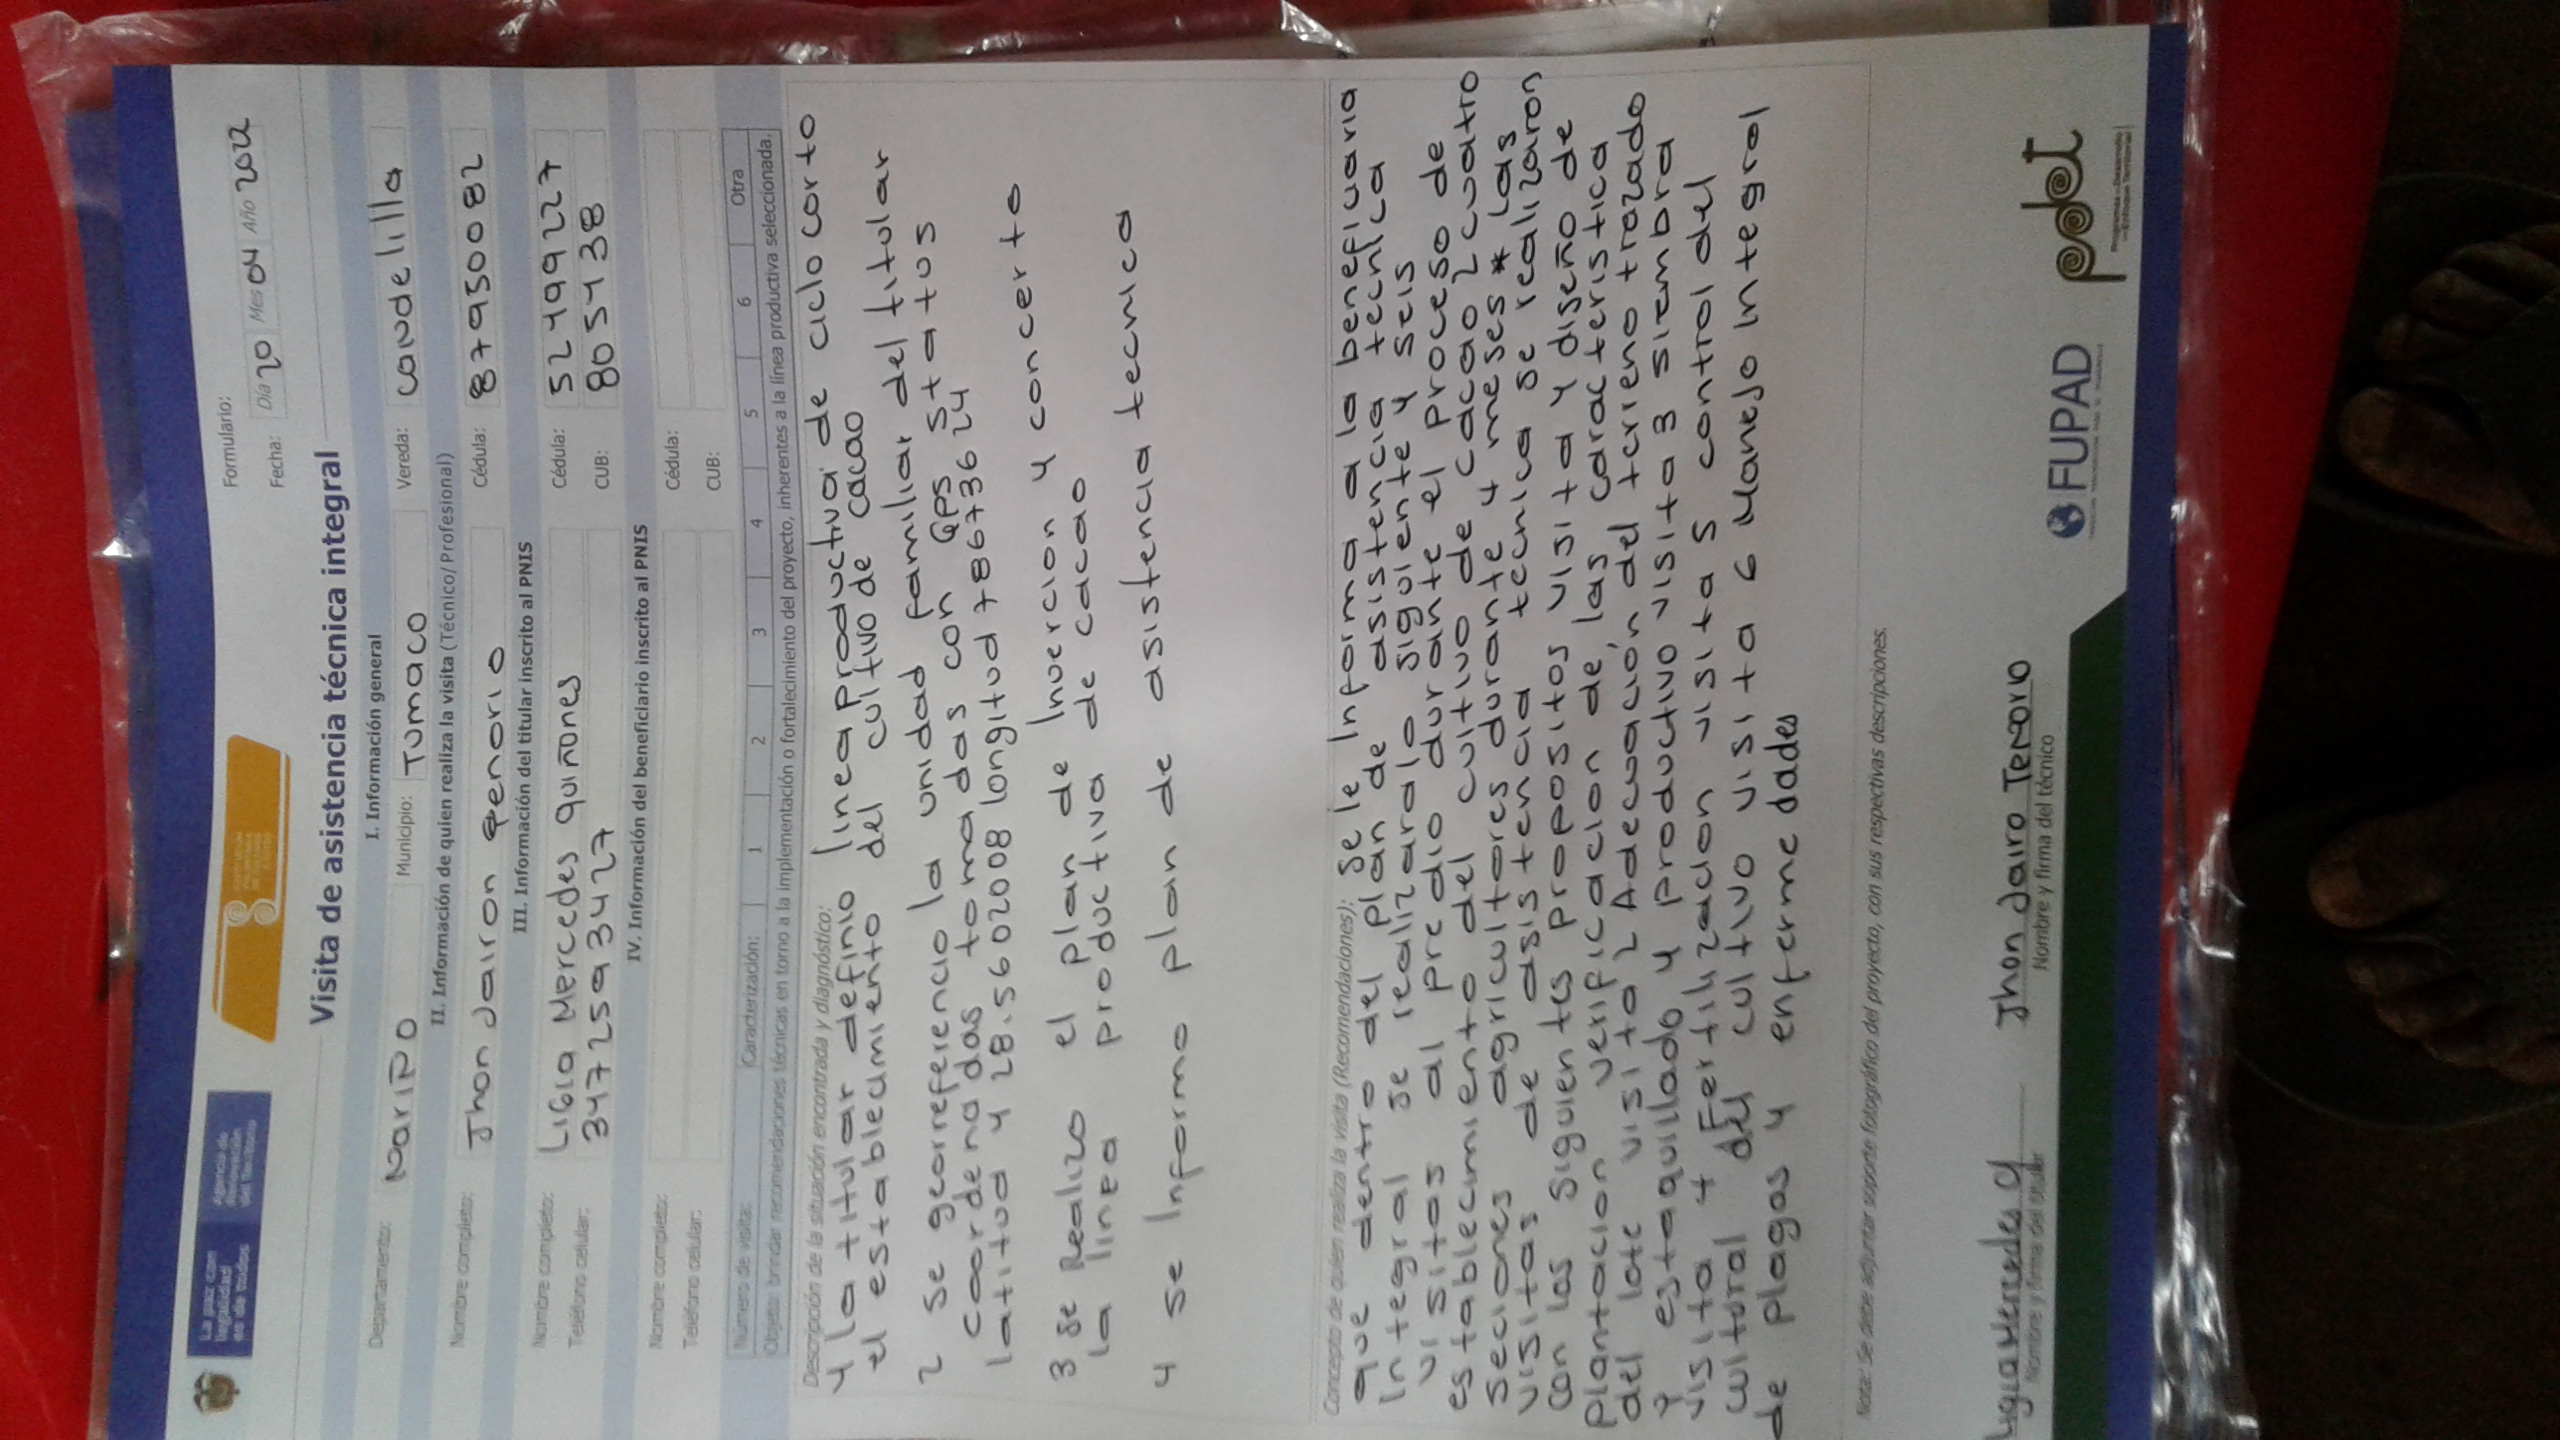 La paz con legalidad es de todos
Agencia de Renovación del Territorio
Formulario:
Fecha: Día 20 Mes 04 Año 2022
Visita de asistencia técnica integral
I. Información general
Departamento: NariÑO Municipio: Tumaco Vereda: candelilla
II. Información de quien realiza la visita (Técnico/ Profesional)
Nombre completo: Jhon Jairon Tenorio Cédula: 87950082
III. Información del titular inscrito al PNIS
Nombre completo: Ligia Mercedes quiñones Cédula: 52499227
Teléfono celular: 3472593427 CUB: 805438
IV. Información del beneficiario inscrito al PNIS
Nombre completo: Cédula:
Teléfono celular: CUB:
Número de visita: Caracterización: 1 2 3 4 5 6 Otra
Objeto: brindar recomendaciones técnicas en torno a la implementación o fortalecimiento del proyecto, inherentes a la línea productiva seleccionada.
Descripción de la situación encontrada y diagnóstico:
y la titular definio linea productiva de ciclo corto
el establecimiento del cultivo de cacao
2 se georreferencio la unidad familiar del titular
coordenadas tomadas con GPS status
latitud y 28.5602008 longitud 78673624
3 se Realizo el plan de Inuercion y concerto
la linea productiva de cacao
4 se Informo plan de asistencia tecnica
Concepto de quien realiza la visita (Recomendaciones): se le Informa a la beneficiaria
que dentro del plan de asistencia tecnica
Integral se realizaralo siguiente y seis
visitas al predio durante el proceso de
establecimiento del cultivo de cacao 2 cuatro
seciones agricultores durante 4 meses * las
visitas de asistencia tecnica se realizaron
con los siguientes propositos visita y diseño de
plantacion verificacion de las caracteristica
del lote visita 2 Adecuación del terreno trazado
y estaquillado y productivo visita 3 siembra
visita 4 Fertilizacion visita 5 control del
cultural del cultivo visita 6 Manejo Integral
de plagas y enfermedades
Nota: Se debe adjuntar soporte fotográfico del proyecto, con sus respectivas descripciones.
Ligia Mercedes q
Nombre y firma del titular
Jhon Jairo Tenorio
Nombre y firma del técnico
FUPAD
pdet
Programas de Desarrollo con Enfoque Territorial